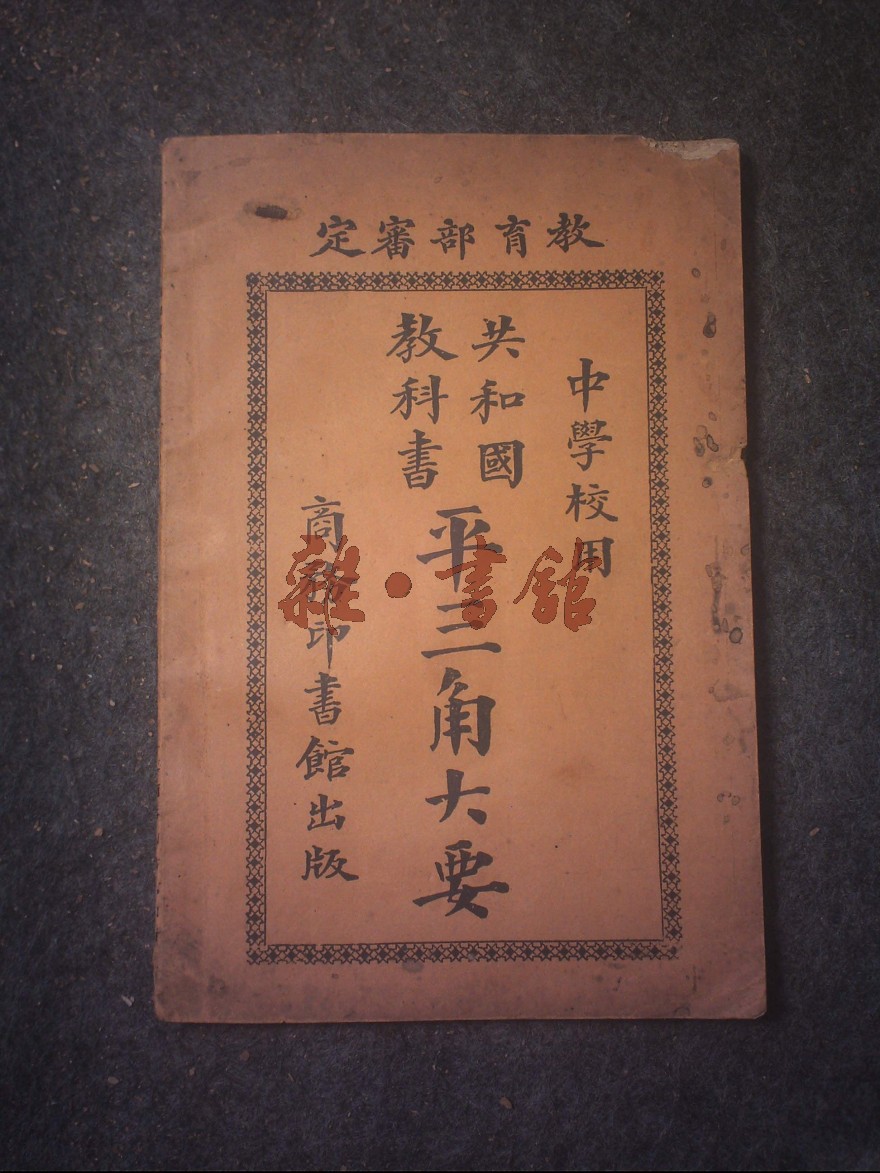 教育部審定
中學校用
共和國
教科書
平三角大要
商務印書館出版
雜·書館